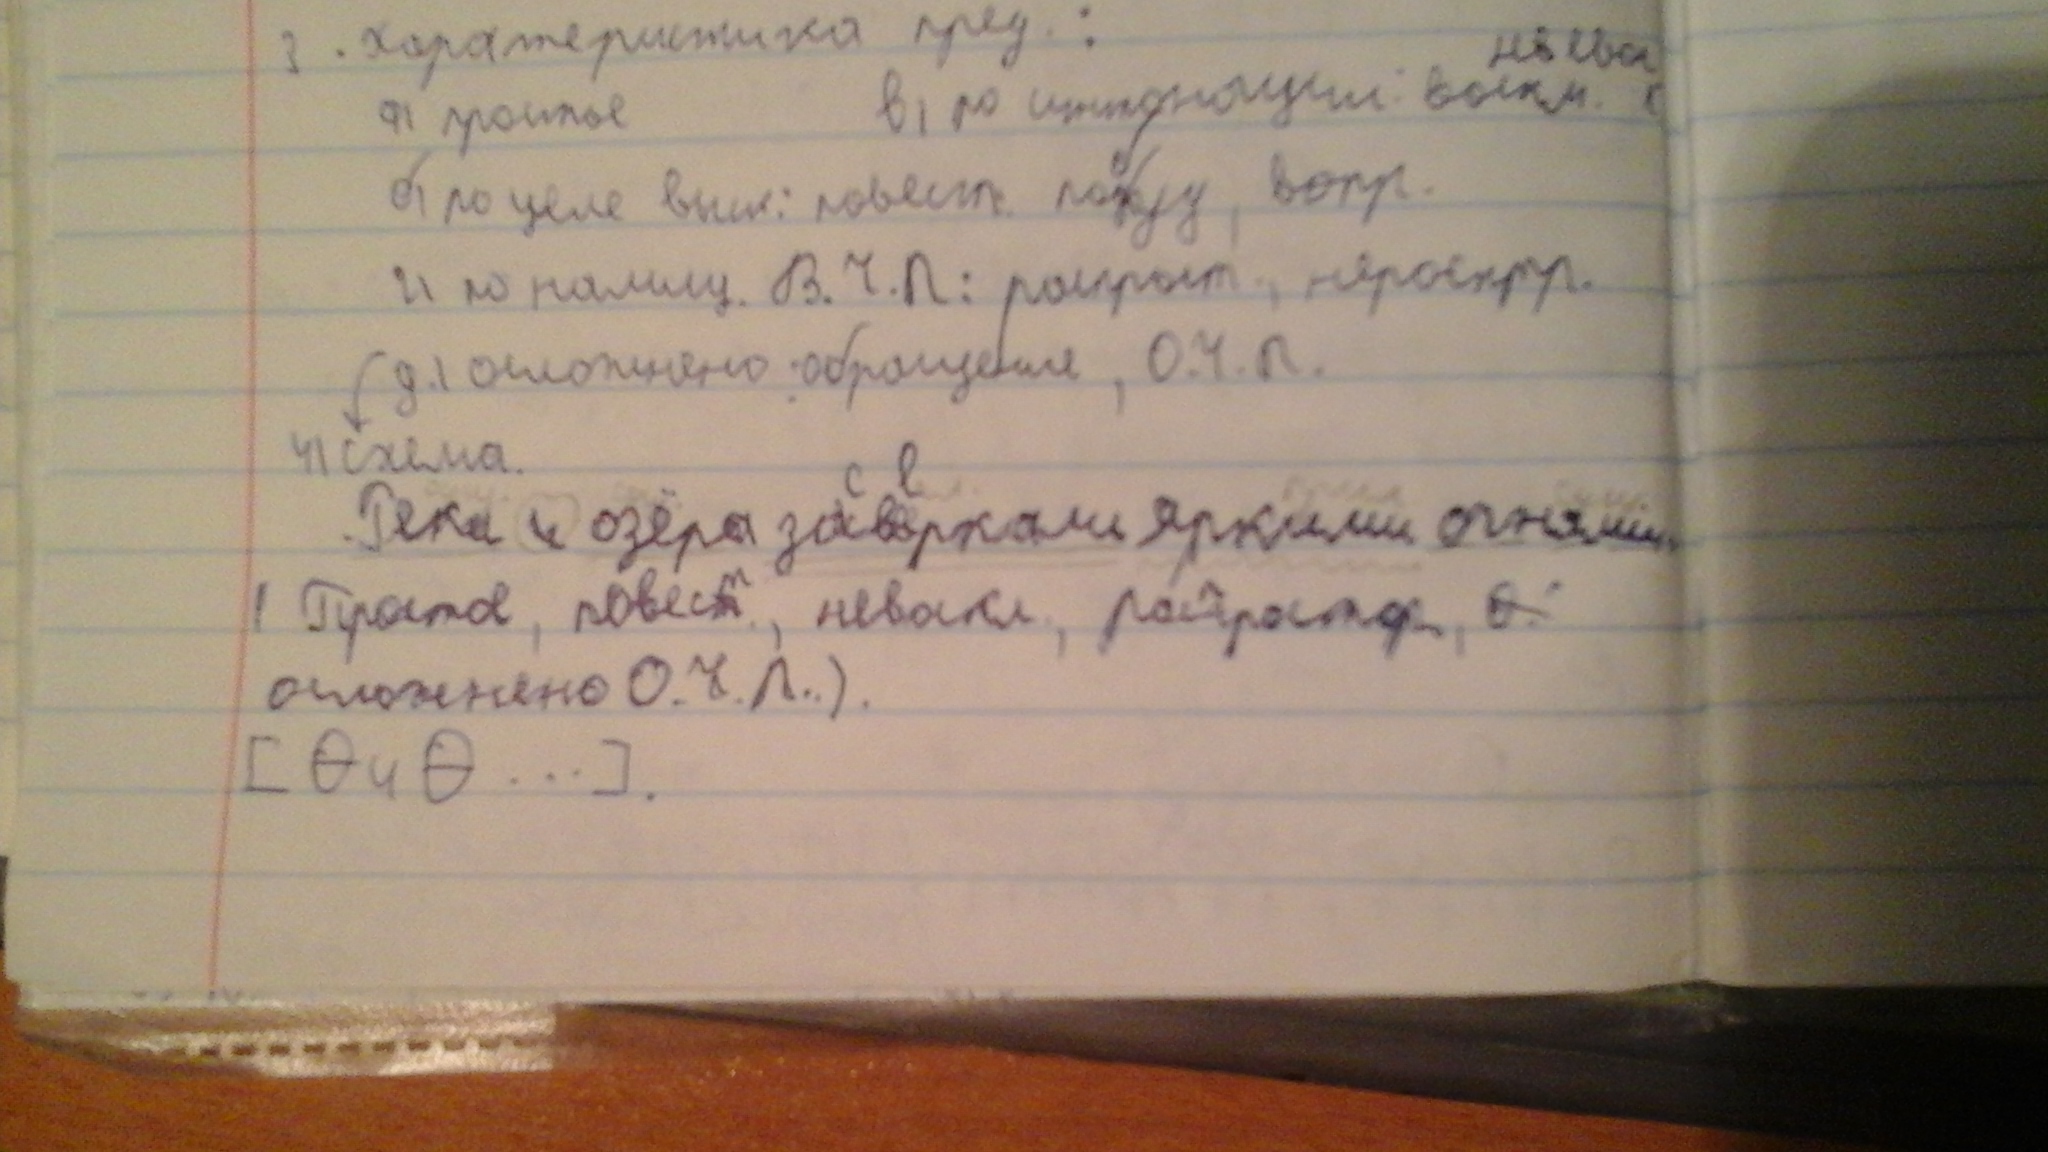 3. Характеристика пред.:
а) простое в) по интонации: воскл. невоск
б) по целе выск: повест. побуу, вопр.
г) по налиц. В.Ч.П: распрост., нераспр.
д.) осложнено: обращения, О.Ч.П.
4) схема.
Река и озёра засверкали яркими огнями.
(Простое, повест., невоскл.,
осложнено О.Ч.П.).
[ и ...].